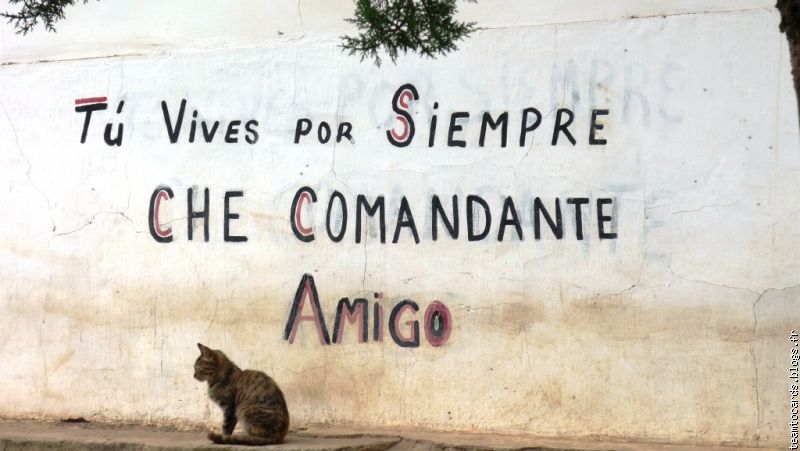 Tú Vives por Siempre
Che Comandante
Amigo
teamtocards.blogs.fr